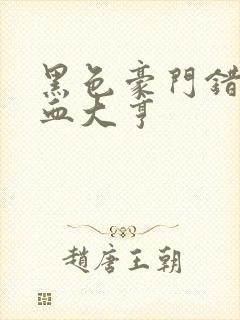 黑色豪門錯
血大亨
趙唐王朝